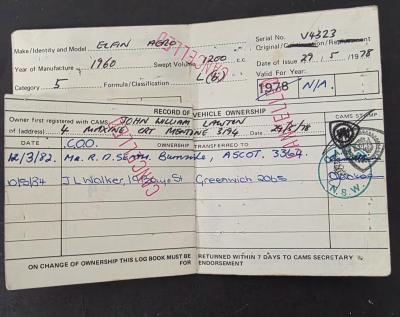 Serial No. V4323
Make/Identity and Model ELFIN AERO Original/Cancellation/Replacement
Year of Manufacture 1960 Swept Volume 1200 c.c. Date of Issue 29 5 1978
(6) Valid For Year:
Category 5 Formula/Classification 1978 N/A.
CANCELLED
CANCELLED
RECORD OF VEHICLE OWNERSHIP
Owner first registered with CAMS JOHN WILLIAM LAWTON CAMS STAMP
of (address) 4 CRT MENTONE 3194 Date 29/5/78
DATE C.O.O. OWNERSHIP TRANSFERRED TO
12/3/82. Mr. R.D. ASCOT. 3364.
J L Walker, St Greenwich 2065
CANCELLED
N.S.W.
ON CHANGE OF OWNERSHIP THIS LOG BOOK MUST BE RETURNED WITHIN 7 DAYS TO CAMS SECRETARY FOR ENDORSEMENT